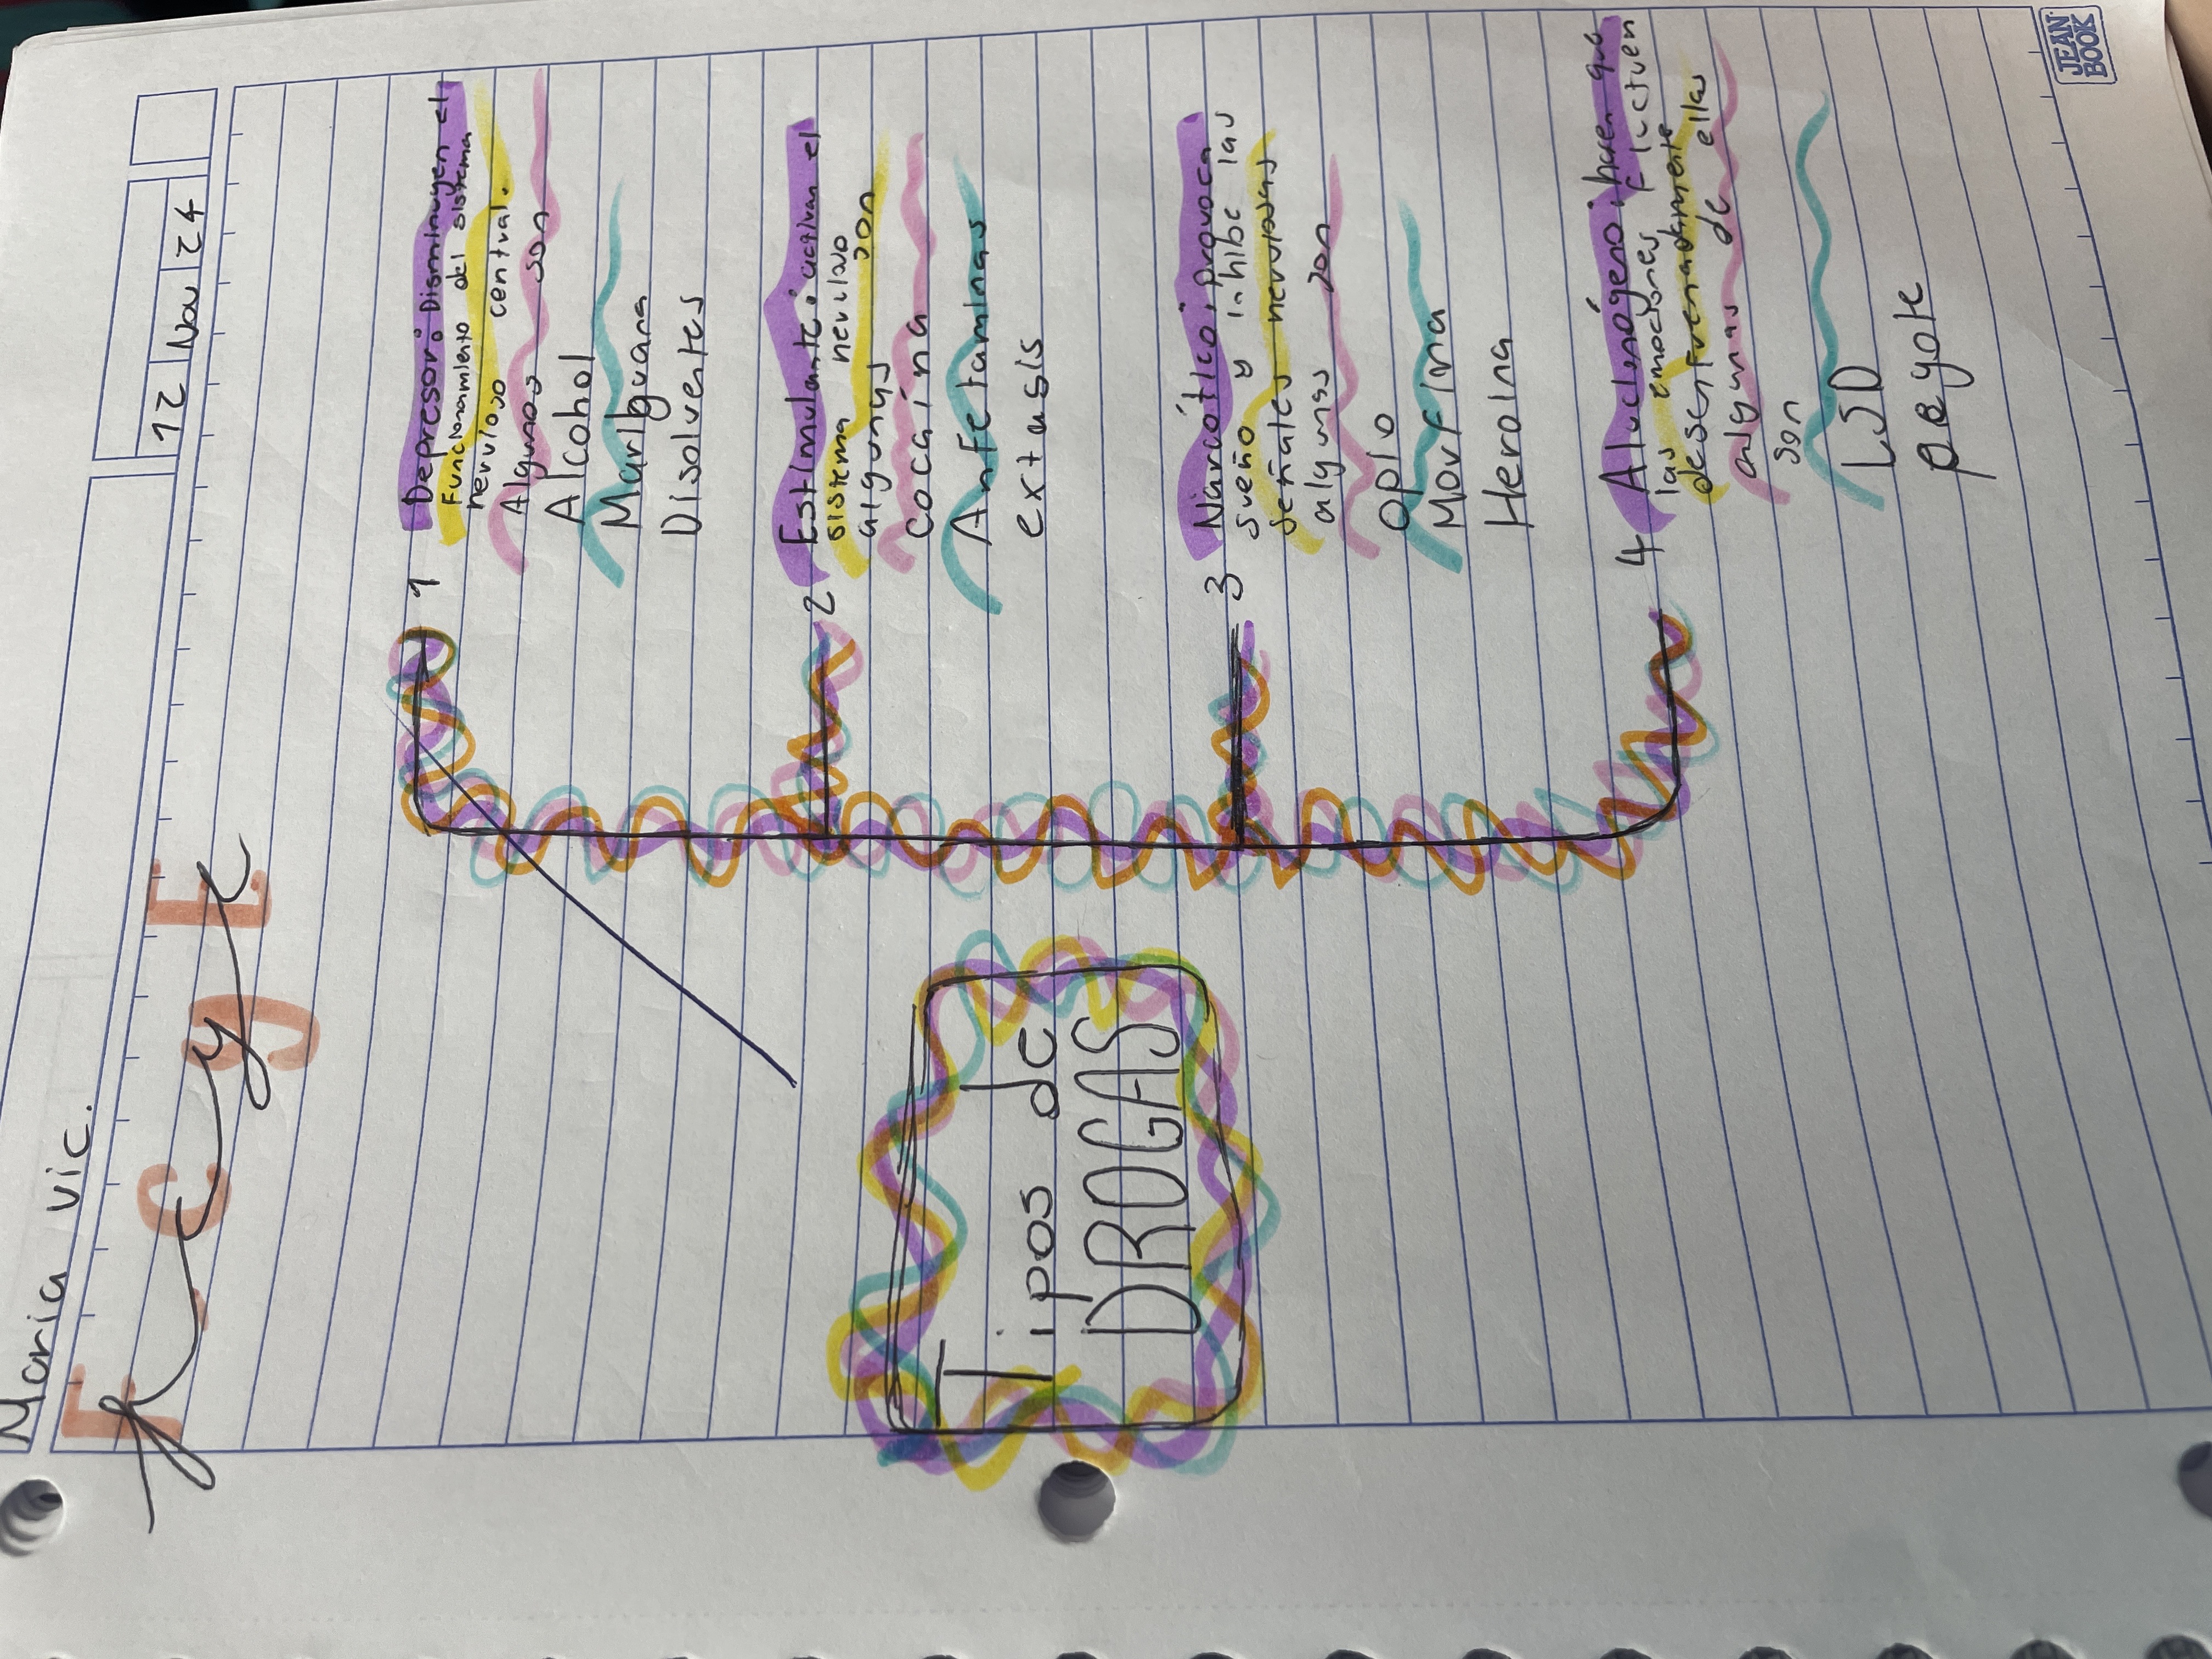 Maria Vic.
12 Nov 24
F. C y E
Tipos de
DROGAS
1 Depresor: Disminuyen el
Funcionamiento del sistema
nervioso central.
Algunos son
Alcohol
Mariguana
Disolventes
2 Estimulante: activan el
sistema nervioso
algunas son
cocaína
Anfetaminas
extasis
3 Narcótico: provoca
sueño y inhibe las
señales nerviosas
algunas son
Opio
Morfina
Heroina
4 Alucinógeno: hace que
las emociones fluctuen
desenfrenadamente
algunas de ellas
son
LSD
peyote
JEAN
BOOK